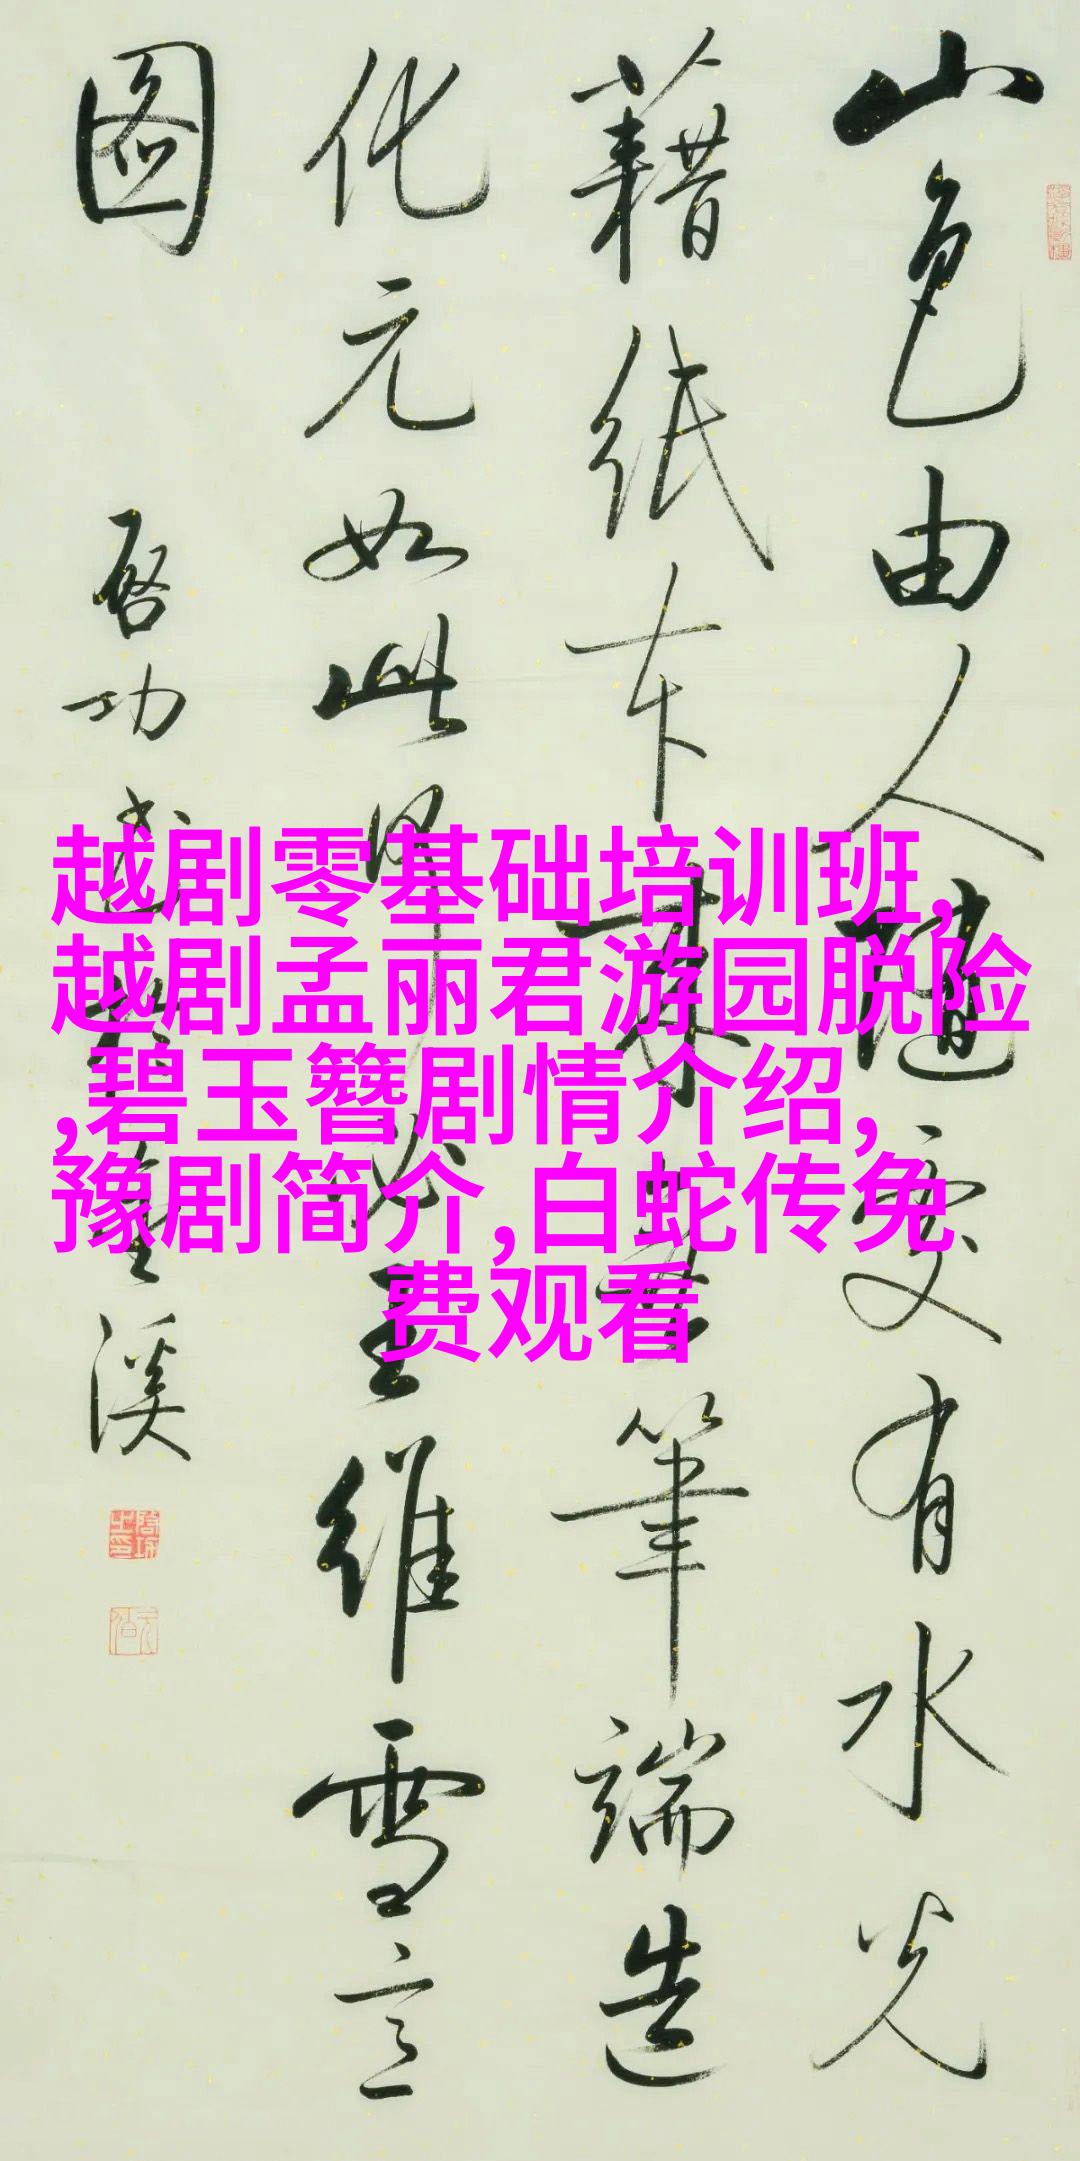 山色由人隨有水光
藉紙本來筆端造
化元如此王維雪意
圖
启功
溪
越剧零基础培训班,
越剧孟丽君游园脱险
,碧玉簪剧情介绍,
豫剧简介,白蛇传免
费观看